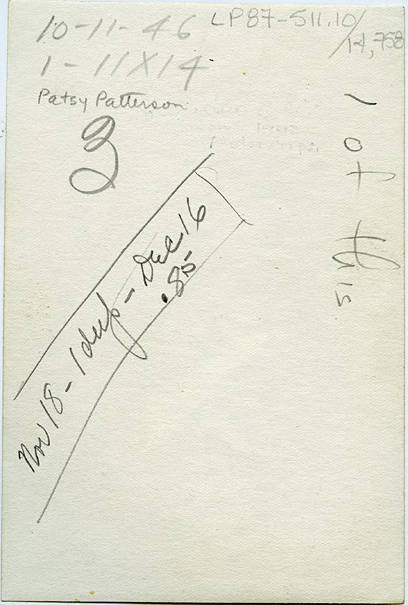 10-11-46
LP87-511.10/
14,758
1 - 11X14
Patsy Patterson
3
Nov 18 - 1 dup - Dec 16
.85
1 of